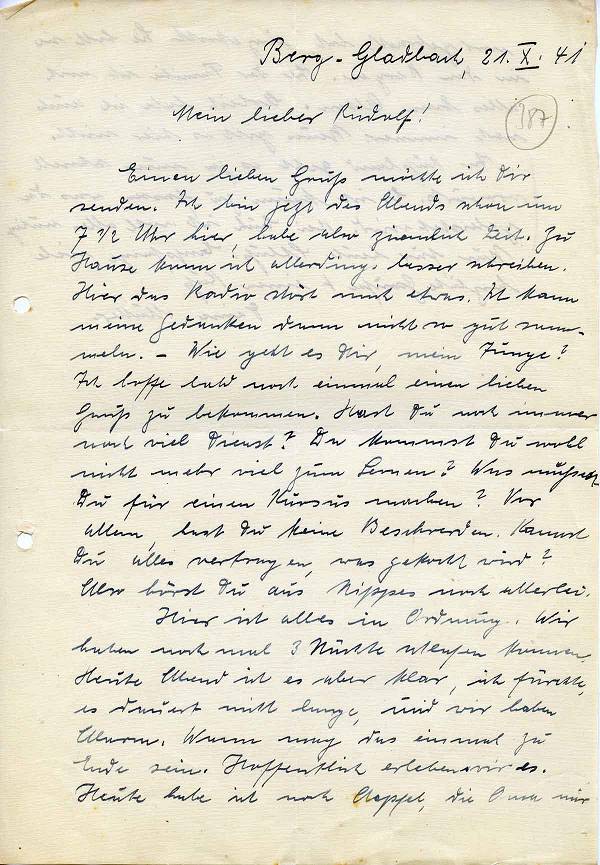 Berg.-Gladbach, 21. X. 41
387
Mein lieber Rudolf!
Einen lieben Gruß möchte ich Dir
senden. Ich bin jetzt des Abends schon um
7 1/2 Uhr hier, habe also ziemlich Zeit. Zu
Hause kann ich allerdings besser schreiben.
Hier das Radio stört mich etwas. Ich kann
meine Gedanken dann nicht so gut sam-
meln. – Wie geht es Dir, mein Junge?
Ich hoffe bald noch einmal einen lieben
Gruß zu bekommen. Hast Du noch immer
noch viel Dienst? Da kommst Du wohl
nicht mehr viel zum Lernen? Was mußtest
Du für einen Kursus machen? Vor
allem, hast Du keine Beschwerden. Kannst
Du alles vertragen, was gekocht wird?
Also hörst Du aus Nippes noch allerlei.
Hier ist alles in Ordnung. Wir
haben noch mal 3 Nächte schlafen können.
Heute Abend ist es aber klar, ich fürchte,
es dauert nicht lange, und wir haben
Alarm. Wann mag das einmal zu
Ende sein. Hoffentlich erleben wir es.
Heute habe ich noch Aepfel, die Oma mir